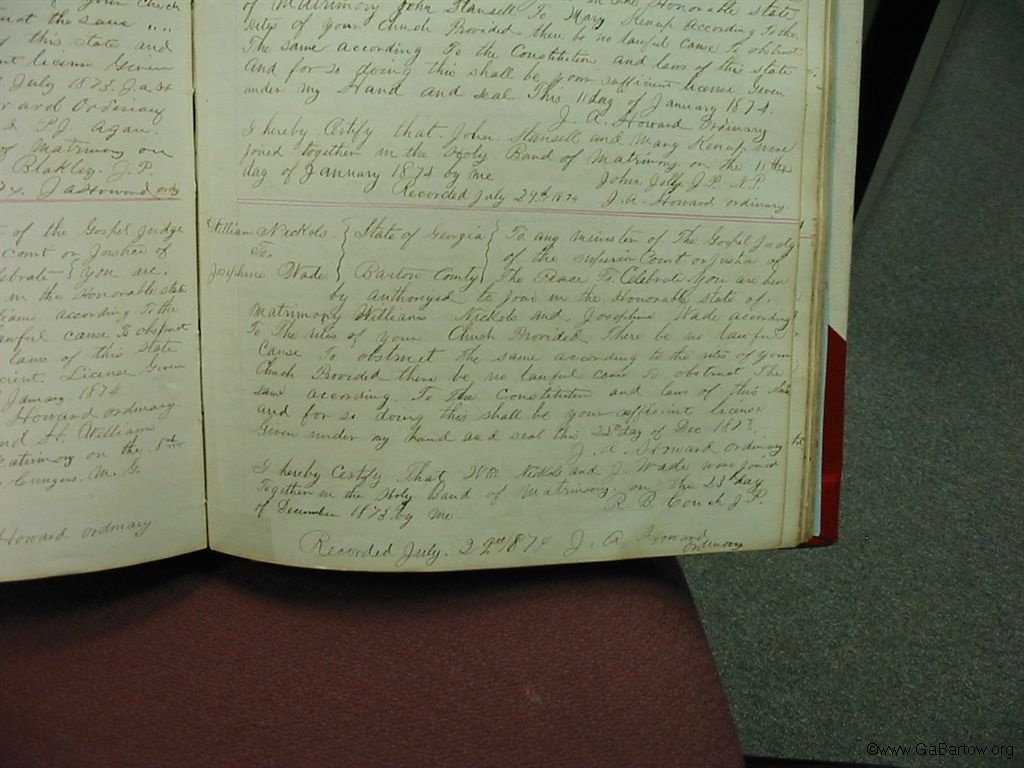 of your Church
ust the same " "
f this state and
nt license Given
July 1873. J.A.H
ward Ordinary
& P.J. Agan.
of Matrimony on
Blakley. J.P.
74. J A Howard ordy
t of the Gospel Judge
court or Justice of
ebrate } You are.
in the Honorable state
iams. according To the
awful cause To obstruct
laws of this State
cient. License Given
January. 1874
Howard ordinary.
nd H. Williams
Matrimony on the
M. G.
Howard ordinary
in the Honorable State,
of Matrimony John Stansell To Mary Kenup According To the
rites of your Church Provided there be no lawful cause To obstruct
The same according To the Constitution and laws of this state
and for so doing this shall be your sufficient license Given
under my Hand and seal This 11 day of January 1874.
J. A. Howard Ordinary
I hereby Certify that John Stansell and Mary Kenup were
Joined together in the Holy Band of Matrimony on the 11th
day of January 1874 by me John Jolly J.P. N.P.
Recorded July 29th 1874 J. A. Howard ordinary.
William Nickols. } State of Georgia } To any minister of The Gospel Judg
To. of the superior Court or Justice of
Josephine Wade } Bartow County } The Peace To Celebrate you are here
by authorized to Join in the Honorable State of.
Matrimony Williams Nickols and Josephine Wade according
To The rites of your Church Provided There be no lawful
Cause To obstruct The same according to the rites of your
Church Provided there be no lawful cause To obstruct The
same according. To The Constitution and law of this State
and for so doing this shall be your sufficient license
Given under my hand and seal this 22nd day of Dec 1873.
J. A. Howard ordinary
I hereby Certify That Wm Nickols and J. Wade were Joined
Together in the Holy Band of Matrimony. on the 23rd day
of December 1873 by me R. B. Couch J.P.
Recorded July. 29th 1874 J. A. Howard
ordinary
©www.GaBartow.org